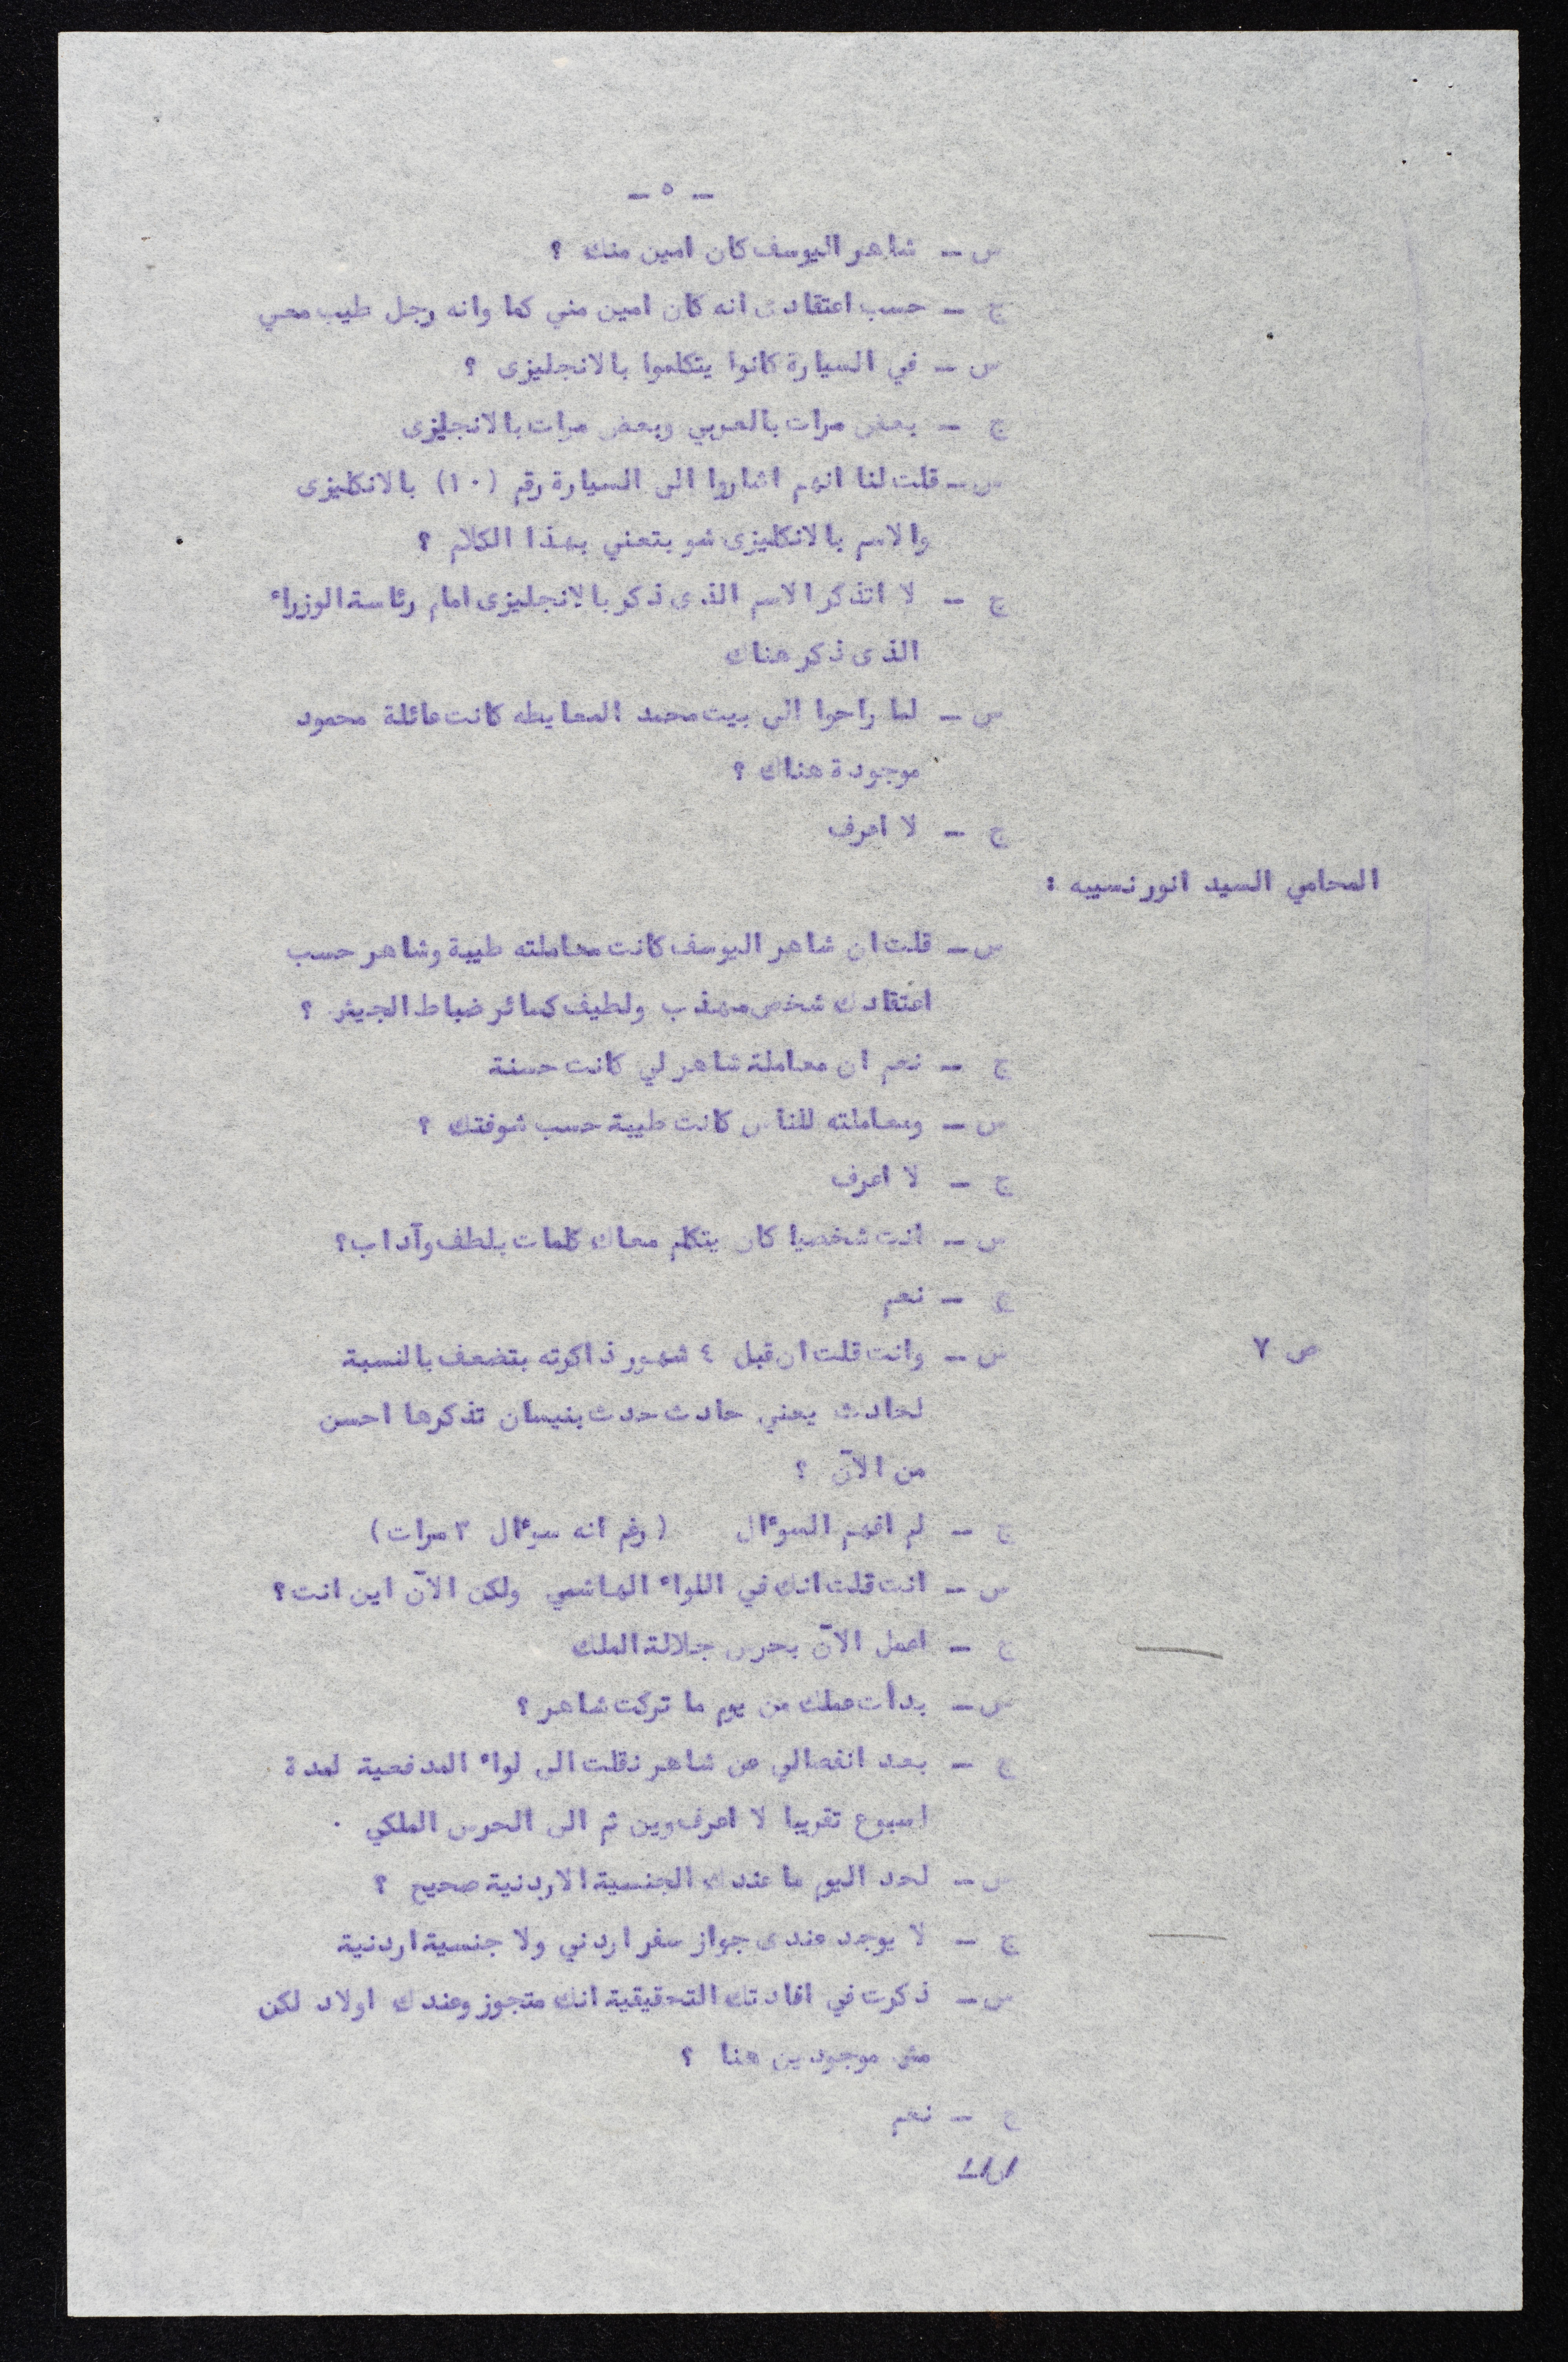 - ٥ -
س - شاهر اليوسف كان امين منك ؟
ج - حسب اعتقادى انه كان امين مني كما وانه رجل طيب معي
س - في السيارة كانوا يتكلموا بالانجليزى ؟
ج - بعض مرات بالعربي وبعض مرات بالانجليزى
س - قلت لنا انهم اشاروا الى السيارة رقم (١٠) بالانكليزى
والاسم بالانكليزى شو بتعني بهذا الكلام ؟
ج - لا اتذكر الاسم الذى ذكر بالانجليزى امام رئاسة الوزراء
الذى ذكر هناك
س - لما راحوا الى بيت محمد المعايطه كانت عائلة محمود
موجودة هناك ؟
ج - لا اعرف
المحامي السيد انور نسيبه :
س - قلت ان شاهر اليوسف كانت معاملته طيبة وشاهر حسب
اعتقادك شخص مهذب ولطيف كسائر ضباط الجيش ؟
ج - نعم ان معاملة شاهر لي كانت حسنة
س - ومعاملته للناس كانت طيبة حسب شوفتك ؟
ج - لا اعرف
س - انت شخصيا كان يتكلم معاك كلمات بلطف وآداب؟
ج - نعم
ص ٧ س - وانت قلت ان قبل ٤ شهور ذاكرته بتضعف بالنسبة
لحادث يعني حادث حدث بنيسان تذكرها احسن
من الآن ؟
ج - لم افهم السوءال (رغم انه سوءال ٣ مرات)
س - انت قلت انك في اللواء الهاشمي ولكن الآن اين انت؟
ج - اعمل الآن بحرس جلالة الملك
س - بدأت عملك من يوم ما تركت شاهر ؟
ج - بعد انفصالي عن شاهر نقلت الى لواء المدفعية لمدة
اسبوع تقريبا لا اعرف وين ثم الى الحرس الملكي .
س - لحد اليوم ما عندك الجنسية الاردنية صحيح ؟
ج - لا يوجد عندى جواز سفر اردني ولا جنسية اردنية
س - ذكرت في افادتك التحقيقية انك متجوز وعندك اولاد لكن
مش موجودين هنا ؟
ج - نعم